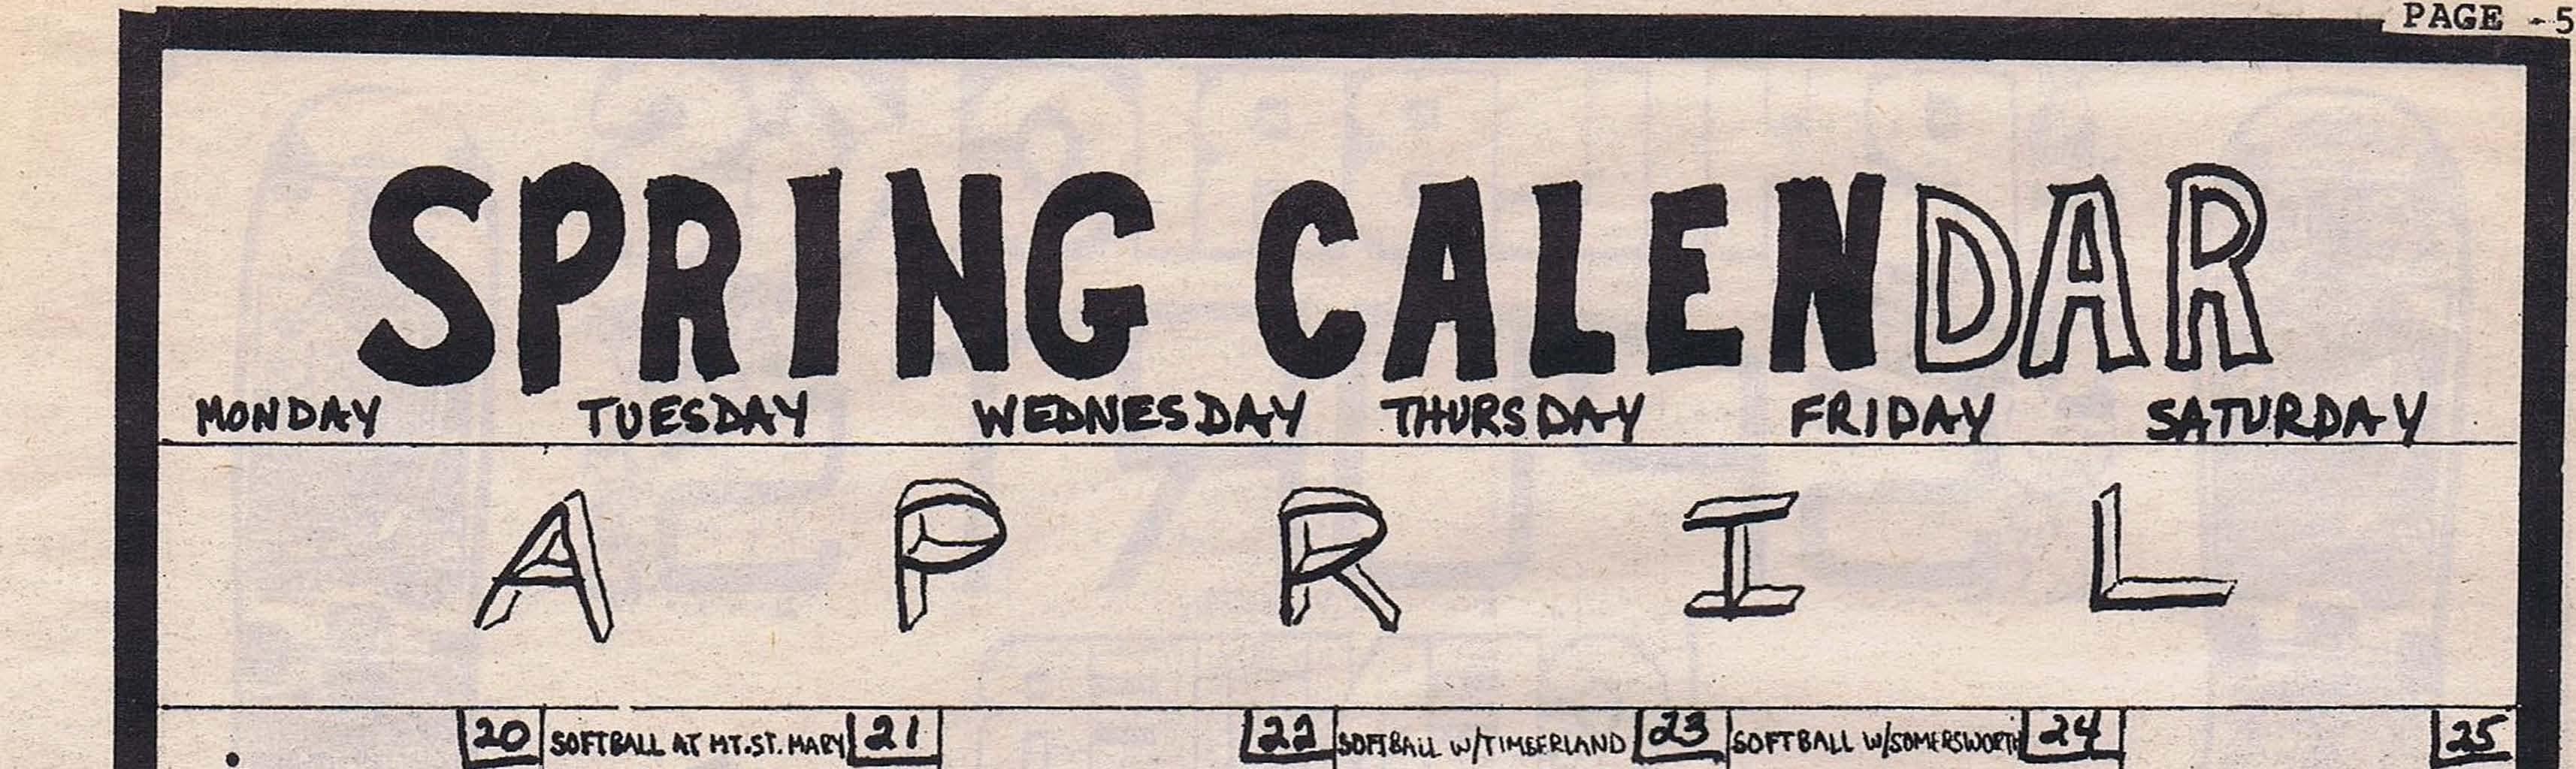 PAGE -5
SPRING CALENDAR
MONDAY TUESDAY WEDNESDAY THURSDAY FRIDAY SATURDAY
APRIL
20 SOFTBALL AT MT.ST.MARY 21 22 SOFTBALL W/TIMBERLAND 23 SOFTBALL W/SOMERSWORTH 24 25